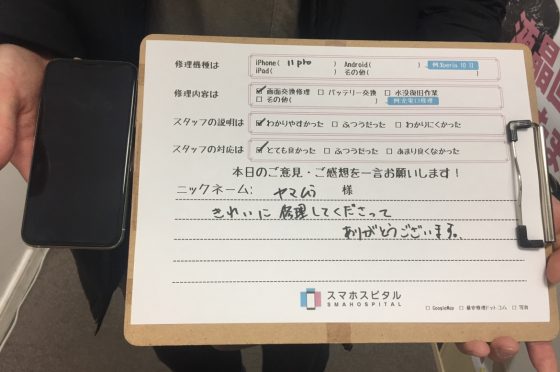 修理機種は iPhone( 11 pro ) Android( ) 例:Xperia 10 Ⅱ
iPad( ) その他( )
修理内容は ☑画面交換修理 □バッテリー交換 □水没復旧作業
□その他( ) 例:充電口修理
スタッフの説明は ☑わかりやすかった □ふつうだった □わかりにくかった
スタッフの対応は ☑とても良かった □ふつうだった □あまり良くなかった
本日のご意見・ご感想を一言お願いします!
ニックネーム: ヤマムラ 様
きれいに修理してくださって
ありがとうございます。
スマホスピタル
SMAHOSPITAL
□GoogleMap □最安修理ドットコム □写真